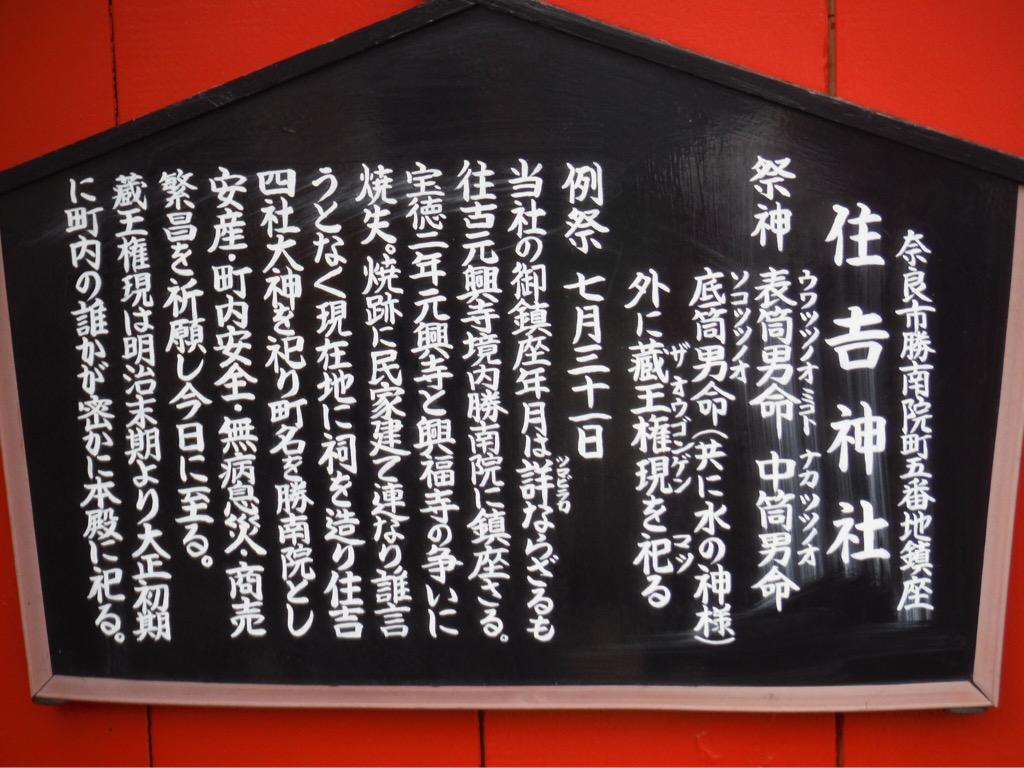 奈良市勝南院町五番地鎮座
住吉神社
祭神 表筒男命 中筒男命
ウワツツノオミコト ナカツツノオ
底筒男命(共に水の神様)
ソコツツノオ
外に蔵王権現を祀る
ザオウゴンゲン マツ
例祭 七月三十一日
当社の御鎮座年月は詳ならざるも
ツマビラカ
往古元興寺境内勝南院に鎮座さる。
宝徳二年元興寺と興福寺の争いに
焼失。焼跡に民家建て連なり誰言
うとなく現在地に祠を造り住吉
四社大神を祀り町名を勝南院とし
安産・町内安全・無病息災・商売
繁昌を祈願し今日に至る。
蔵王権現は明治末期より大正初期
に町内の誰かが密かに本殿に祀る。